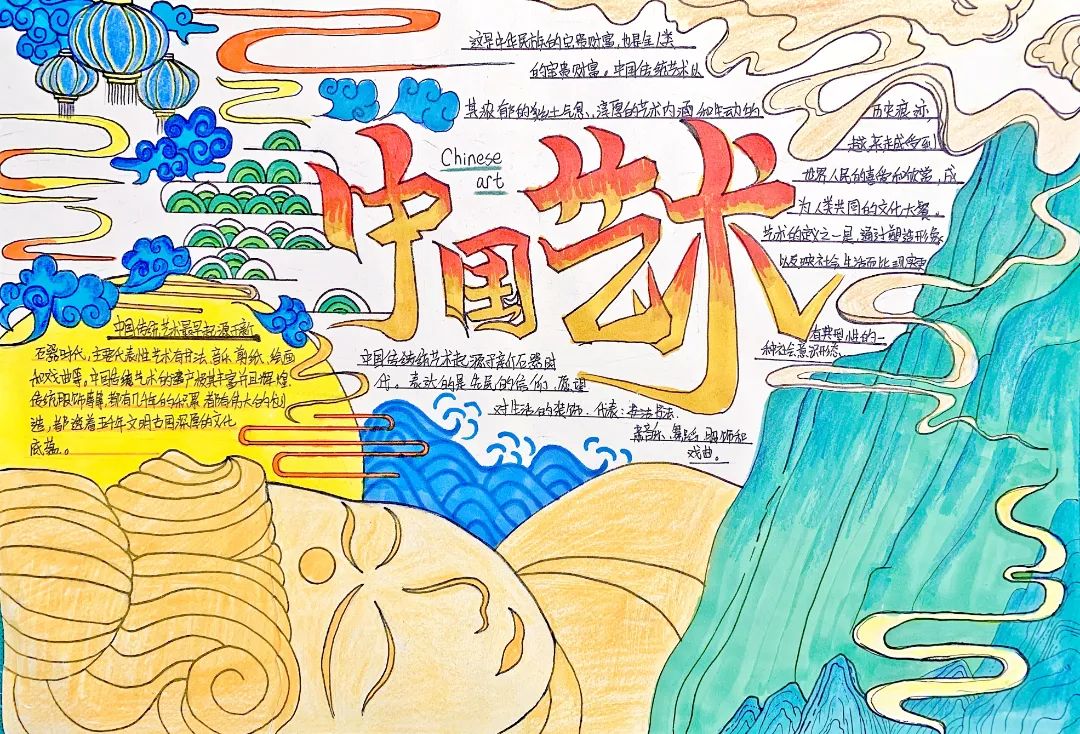 这是中华民族的宝贵财富,也是全人类
的宝贵财富。中国传统艺术以
其浓郁的乡土气息、淳厚的艺术内涵和生动的
历史痕迹
越来越受到
世界人民的喜爱和欣赏,成
为人类共同的文化大餐。
艺术的定义之一是,通过塑造形象
以反映社会生活而比现实更
有典型性的一
种社会意识形态
Chinese
art
中国艺术
中国传统艺术最早起源于新
石器时代,主要代表性艺术有书法、音乐、剪纸、绘画
和戏曲等。中国传统艺术的遗产极其丰富并且辉煌
传统服饰,都有几千年的积累,都有伟大的创
造,都透着五千年文明古国深厚的文化
底蕴。
中国传统艺术起源于新石器时
代。表达的是先民的信仰、愿望
对生活的装饰。代表:书法
音乐、舞蹈、服饰和
戏曲。